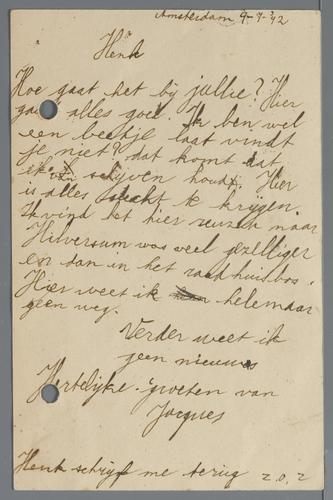 Amsterdam 9-7-'42
Henk
Hoe gaat het bij jullie? Hier
gaat alles goed. Ik ben wel
een beetje laat vindt
je niet? dat komt dat
ik schijven houdt. Hier
is alles slecht te krijgen.
Ik vind het hier reuzen maar
Hilversum was veel gezelliger
en dan in het raadhuisbos.
Hier weet ik helemaar
geen weg.
Verder weet ik
geen nieuws
Hertelijke groeten van
Jacques
Henk schrijf me terug z.o.z